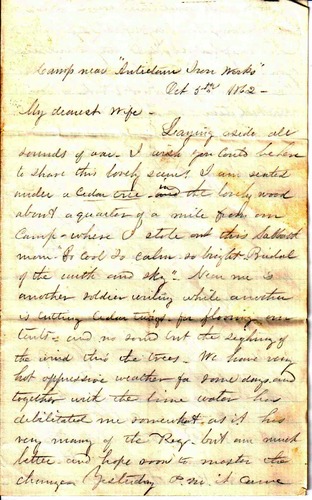 Camp near "Antietam Iron Works"
Oct 5th 1862 -
My dearest Wife -
Laying aside all
sounds of war - I wish you could be here
to share this lovely scene! I am seated
under a Cedar tree in the lovely wood
about a quarter of a mile from our
Camp - where I stole out this Sabbath
morn "So cool so calm so bright Bridal
of the earth and sky" - Near me is
another soldier writing while another
is cutting Cedar twigs for flooring our
tents - and no sound but the sighing of
the wind thro the trees - We have very
hot oppressive weather for some days, and
together with the lime water has
debilitated me somewhat, as it has
very many of the Reg - but am much
better and hope soon to master the
changes. Yesterday P.M. it came